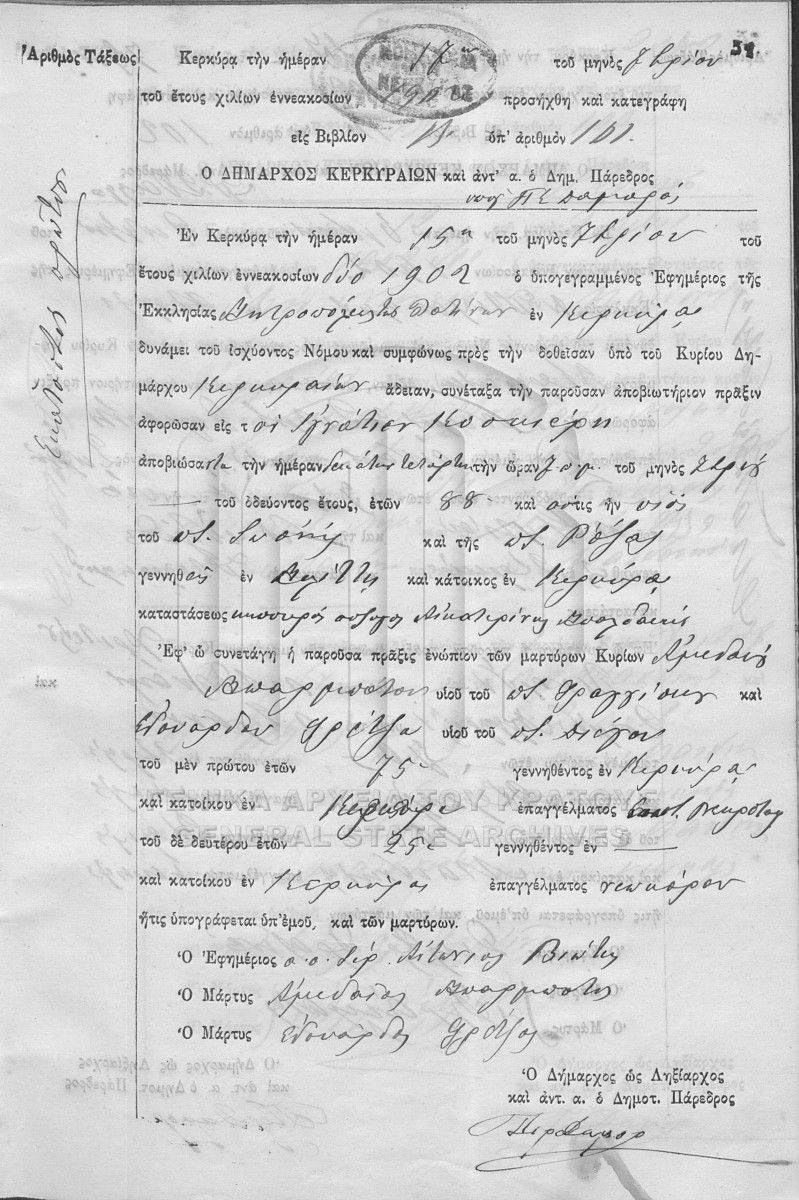 51.
Ἀριθμὸς Τάξεως
Κερκύρᾳ τὴν ἡμέραν 17ην τοῦ μηνὸς 7βρίου
τοῦ ἔτους χιλίων ἐννεακοσίων 1902 προσήχθη καὶ κατεγράφη
εἰς Βιβλίον ὑπ' ἀριθμὸν 101.
Ο ΔΗΜΑΡΧΟΣ ΚΕΡΚΥΡΑΙΩΝ καὶ ἀντ' α. ὁ Δημ. Πάρεδρος
Ἑκατοστὸς πρῶτος
Ἐν Κερκύρᾳ τὴν ἡμέραν 15η τοῦ μηνὸς 7βρίου τοῦ
ἔτους χιλίων ἐννεακοσίων δύο 1902 ὁ ὑπογεγραμμένος Ἐφημέριος τῆς
Ἐκκλησίας Μητροπόλεως Λατίνων ἐν Κερκύρᾳ
δυνάμει τοῦ ἰσχύοντος Νόμου καὶ συμφώνως πρὸς τὴν δοθεῖσαν ὑπὸ τοῦ Κυρίου Δη-
μάρχου Κερκυραίων ἄδειαν, συνέταξα τὴν παροῦσαν ἀποβιωτήριον πρᾶξιν
ἀφορῶσαν εἰς τὸν Ἰγνάτιον
ἀποβιώσαντα τὴν ἡμέραν δεκάτην τετάρτην τὴν ὥραν 7 π.μ. τοῦ μηνὸς 7βρίου
τοῦ ὁδεύοντος ἔτους, ἐτῶν 88 καὶ ὅστις ἦν υἱὸς
τοῦ ποτ. καὶ τῆς ποτ. Ρόζας
γεννηθεὶς ἐν Μελίτῃ καὶ κάτοικος ἐν Κερκύρᾳ
καταστάσεως κηπουρὸς σύζυγος Αἰκατερίνης
Ἐφ' ᾧ συνετάγη ἡ παροῦσα πρᾶξις ἐνώπιον τῶν μαρτύρων Κυρίων Ἀμεδαίου
υἱοῦ τοῦ ποτ. Φραγγίσκου καὶ
Ἐδουάρδου Φρέτζα υἱοῦ τοῦ ποτ.
τοῦ μὲν πρώτου ἐτῶν 75 γεννηθέντος ἐν Κερκύρᾳ
καὶ κατοίκου ἐν Κερκύρᾳ ἐπαγγέλματος
τοῦ δὲ δευτέρου ἐτῶν 25 γεννηθέντος ἐν —
καὶ κατοίκου ἐν Κερκύρᾳ ἐπαγγέλματος νεωκόρου
ἥτις ὑπογράφεται ὑπ' ἐμοῦ, καὶ τῶν μαρτύρων.
Ὁ Ἐφημέριος Ἀντώνιος
Ὁ Μάρτυς Ἀμεδαῖος
Ὁ Μάρτυς Ἐδουάρδος Φρέτζας
Ὁ Δήμαρχος ὡς Ληξίαρχος
καὶ ἀντ. α. ὁ Δημοτ. Πάρεδρος
ΓΕΝΙΚΑ ΑΡΧΕΙΑ ΤΟΥ ΚΡΑΤΟΥΣ
GENERAL STATE ARCHIVES